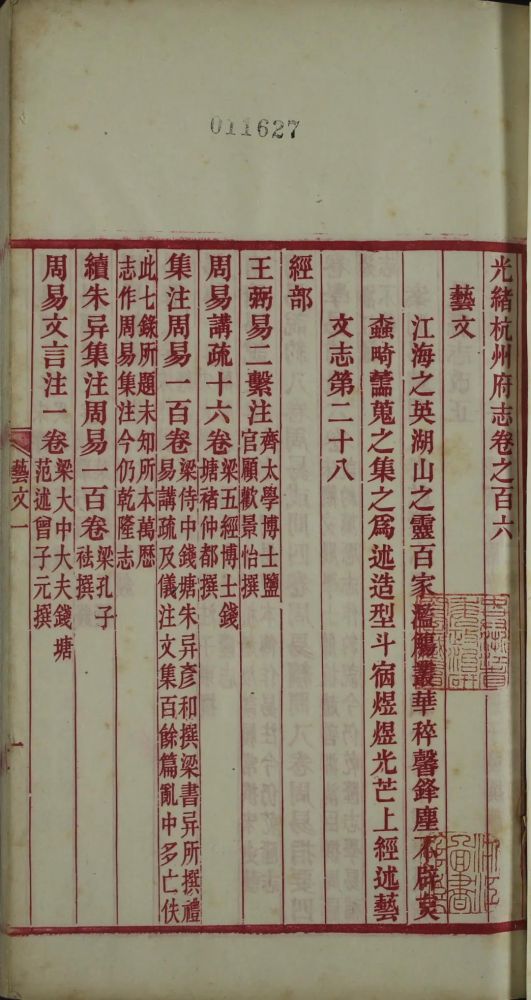 011627
光緒杭州府志卷之百六
藝文
江海之英湖山之靈百家濫觴叢華稡馨鋒塵不辟莢
蠧畸蠹蒐之集之爲述造型斗宿煜煜光芒上經述藝
文志第二十八
經部
王弼易二繫注 齊太學博士鹽
官顧歡景怡撰
周易講疏十六卷 梁五經博士錢
塘褚仲都撰
集注周易一百卷 梁侍中錢塘朱异彥和撰梁書异所撰禮
易講疏及儀注文集百餘篇亂中多亡佚
此七錄所題未知所本萬歷
志作周易集注今仍乾隆志
續朱异集注周易一百卷 梁孔子
祛撰
周易文言注一卷 梁大中大夫錢塘
范述曾子元撰
藝文一
一